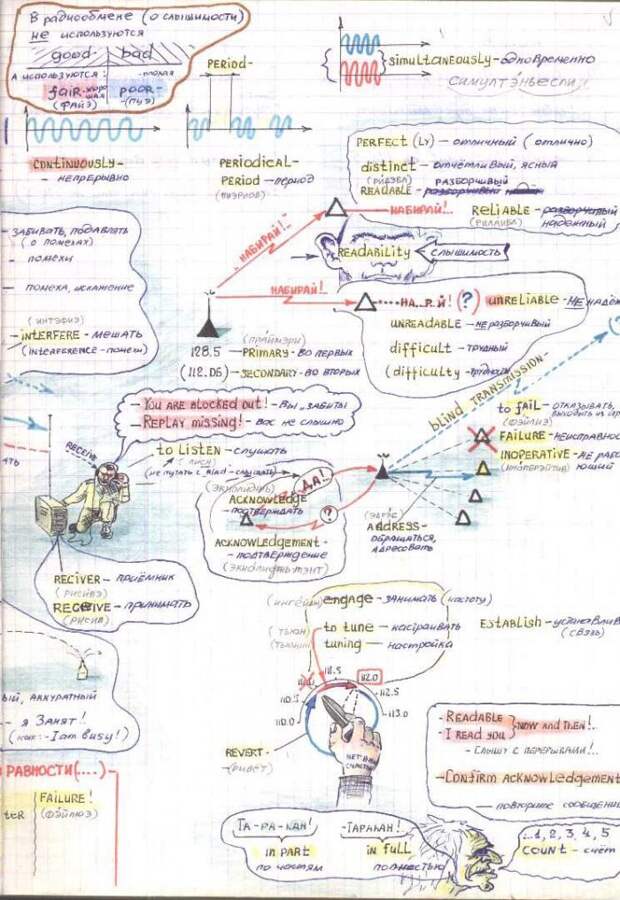 В радиообмене (о слышимости)
не используются
good - bad
А используются: - плохая
fair - хорошая poor -
(фаиэ) (пуэ)
PERIOD -
simultaneously - одновременно
симултэньесли
CONTINUOUSLY -
- непрерывно
PERIODICAL -
PERIOD - период
(пиэриод)
PERFECT (LY) - отличный (отлично)
distinct - отчётливый, ясный
READABLE - разборчивый
НАБИРАЙ!..
RELIABLE - разборчивый
надежный
НАБИРАЙ!..
READABILITY - слышимость
- забивать, подавлять
(о помехах)
- помехи
- помеха, искажение
(интэфиэ)
INTERFERE - мешать
(interference - помеш)
НАБИРАЙ!
... НА..Р.Й! (?) UNRELIABLE - НЕ надёж
UNREADABLE - неразборчивый
difficult - трудный
(difficulty - трудности
(праймэри)
128.5 - PRIMARY - во первых
(112.06) - SECONDARY - во вторых
blind TRANSMISSION -
- You are blocked out! - Вы „забиты"
- REPLAY missing! - Вас не слышно
RECEIVE
to LISTEN - слушать
(лисн)
(не путать с Read - слышать)
to fail - отказывать,
(фэйлиэ)
FAILURE - неисправнос
INOPERATIVE - не рабо
ющий
(экнолидж)
ACKNOWLEDGE
- подтверждать
ДА!..
?
ACKNOWLEDGEMENT -
- подтверждение
(экнолидж-мэнт)
(эдрэс)
ADDRESS -
обращаться,
адресовать
RECIVER - приёмник
(рисивэ)
RECEIVE - принимать
(рисив)
(ингейдж) engage - занимать (частоту)
(тьюн) to tune - настраивать
(тьюнинг) tuning - настройка
ESTABLISH - установлив
(связь)
ый, аккуратный
- я Занят!
(как: - I am busy!)
110.0
110.5
111.5
112.0
112.5
113.0
REVERT -
- (ривёт)
НЕТ В ЖИЗНИ СЧАСТЬЯ
- READABLE
- I READ YOU
NOW AND THEN!..
- слышу с перерывами!..
- CONFIRM ACKNOWLEDGEMENT
- повторите сообщени
РАВНОСТИ (....) -
FAILURE!
(фэйлюэ)
TER
ТА-РА-КАН! - ТАРАКАН!
in part in full
по частям полностью
...1, 2, 3, 4, 5
COUNT - счёт